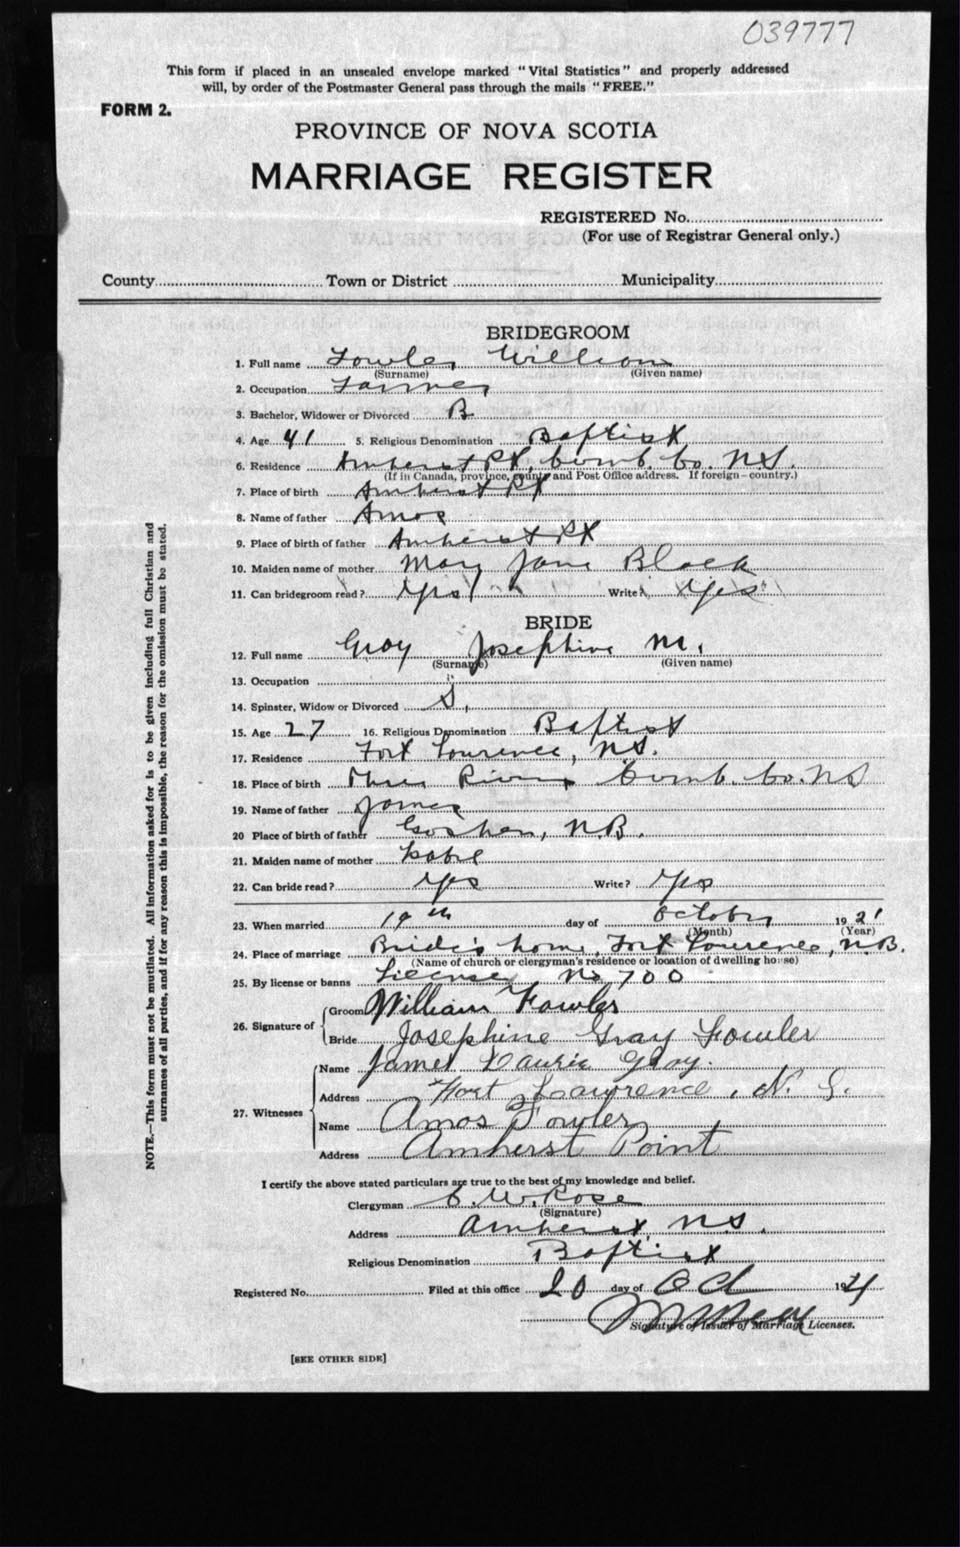 039777
This form if placed in an unsealed envelope marked "Vital Statistics" and properly addressed
will, by order of the Postmaster General pass through the mails "FREE."
FORM 2.
PROVINCE OF NOVA SCOTIA
MARRIAGE REGISTER
REGISTERED No.
(For use of Registrar General only.)
County Town or District Municipality
BRIDEGROOM
1. Full name Fowler William
(Surname) (Given name)
2. Occupation Farmer
3. Bachelor, Widower or Divorced B
4. Age 41 5. Religious Denomination Baptist
6. Residence Amherst Pt, Cumb. Co. N.S.
(If in Canada, province, county and Post Office address. If foreign—country.)
7. Place of birth Amherst Pt
8. Name of father Amos
9. Place of birth of father Amherst Pt
10. Maiden name of mother Mary Jane Black
11. Can bridegroom read? Yes Write? Yes
BRIDE
12. Full name Gray Josephine M.
(Surname) (Given name)
13. Occupation
14. Spinster, Widow or Divorced S.
15. Age 27 16. Religious Denomination Baptist
17. Residence Fort Lourence, N.S.
18. Place of birth Three Rivers Cumb. Co. N.S
19. Name of father James
20 Place of birth of father Goshen, N.B.
21. Maiden name of mother Isabel
22. Can bride read? Yes Write? Yes
23. When married 19th day of October 1921
(Month) (Year)
24. Place of marriage Bride's home, Fort Lourence, N.B.
(Name of church or clergyman's residence or location of dwelling house)
25. By license or banns License No 700
26. Signature of Groom William Fowler
Bride Josephine Gray Fowler
27. Witnesses Name James Laurie Gray.
Address Fort Lawrence, N. S.
Name Amos Fowler
Address Amherst Point
I certify the above stated particulars are true to the best of my knowledge and belief.
Clergyman C. W. Rose
(Signature)
Address Amherst, N.S.
Religious Denomination Baptist
Registered No. Filed at this office 20 day of Oct 19
Signature of Issuer of Marriage Licenses.
[SEE OTHER SIDE]
NOTE.—This form must not be mutilated. All information asked for is to be given including full Christian and
surnames of all parties, and if for any reason this is impossible, the reason for the omission must be stated.